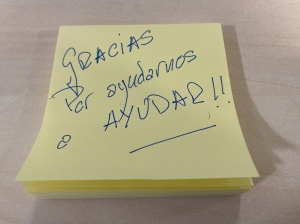 GRACIAS
Por ayudarnos
a AYUDAR!!